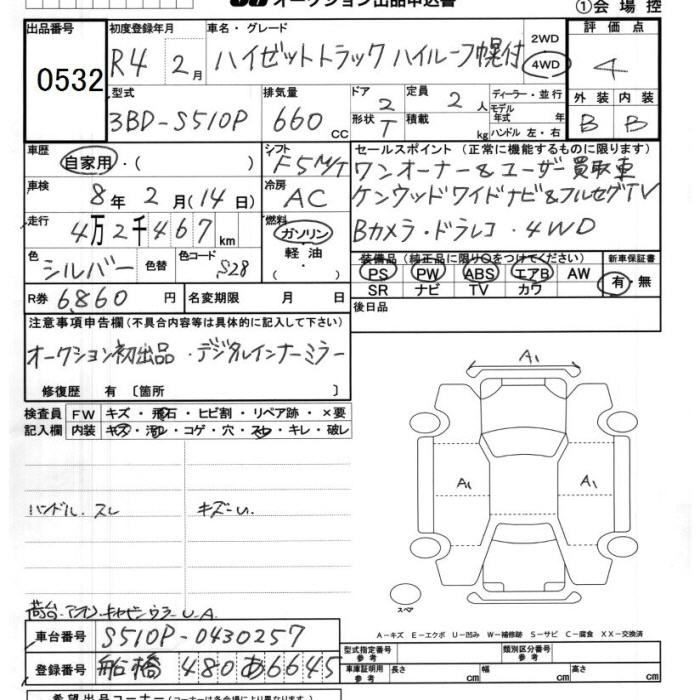 オークション出品申込書
①会場控
出品番号 初度登録年月 車名・グレード 2WD 評価点
0532 R4 2月 ハイゼットトラック ハイルーフ幌付 4WD 4
型式 排気量 ドア 2 定員 2人 ディーラー・並行 外装 内装
3BD-S510P 660 CC 形状 T 積載 kg モデル年式 年 ハンドル 左・右 B B
車歴 自家用・( ) シフト F5M/T セールスポイント (正常に機能するものに限ります)
ワンオーナー&ユーザー買取車
車検 8年 2月(14日) 冷房 AC ケンウッドワイドナビ&フルセグTV
走行 4万2千467km 燃料 ガソリン・軽油・( ) Bカメラ・ドラレコ・4WD
色 シルバー 色替 色コード S28 装備品 (純正品に限り○をつけてください) 新車保証書
PS PW ABS エアB AW 有・無
SR ナビ TV カワ
R券 6,860円 名変期限 月 日 後日品
注意事項申告欄 (不具合内容等は具体的に記入して下さい)
オークション初出品・デジタルインナーミラー
修復歴 有 〔箇所 〕
検査員 FW キズ・飛石・ヒビ割・リペア跡・×要
記入欄 内装 キズ・汚レ・コゲ・穴・スレ・キレ・破レ
A1
A1 A1
ハンドル.スレ キズ-い.
スペア
A-キズ E-エクボ U-凹み W-補修跡 S-サビ C-腐食 XX-交換済
車台番号 S510P-0430257
登録番号 船橋 480 あ6645
型式指定番号 参考 類別区分番号 参考
車庫証明用 参考 長さ cm 幅 cm 高さ cm
希望出品コーナー (コーナーは各会場により異なります)